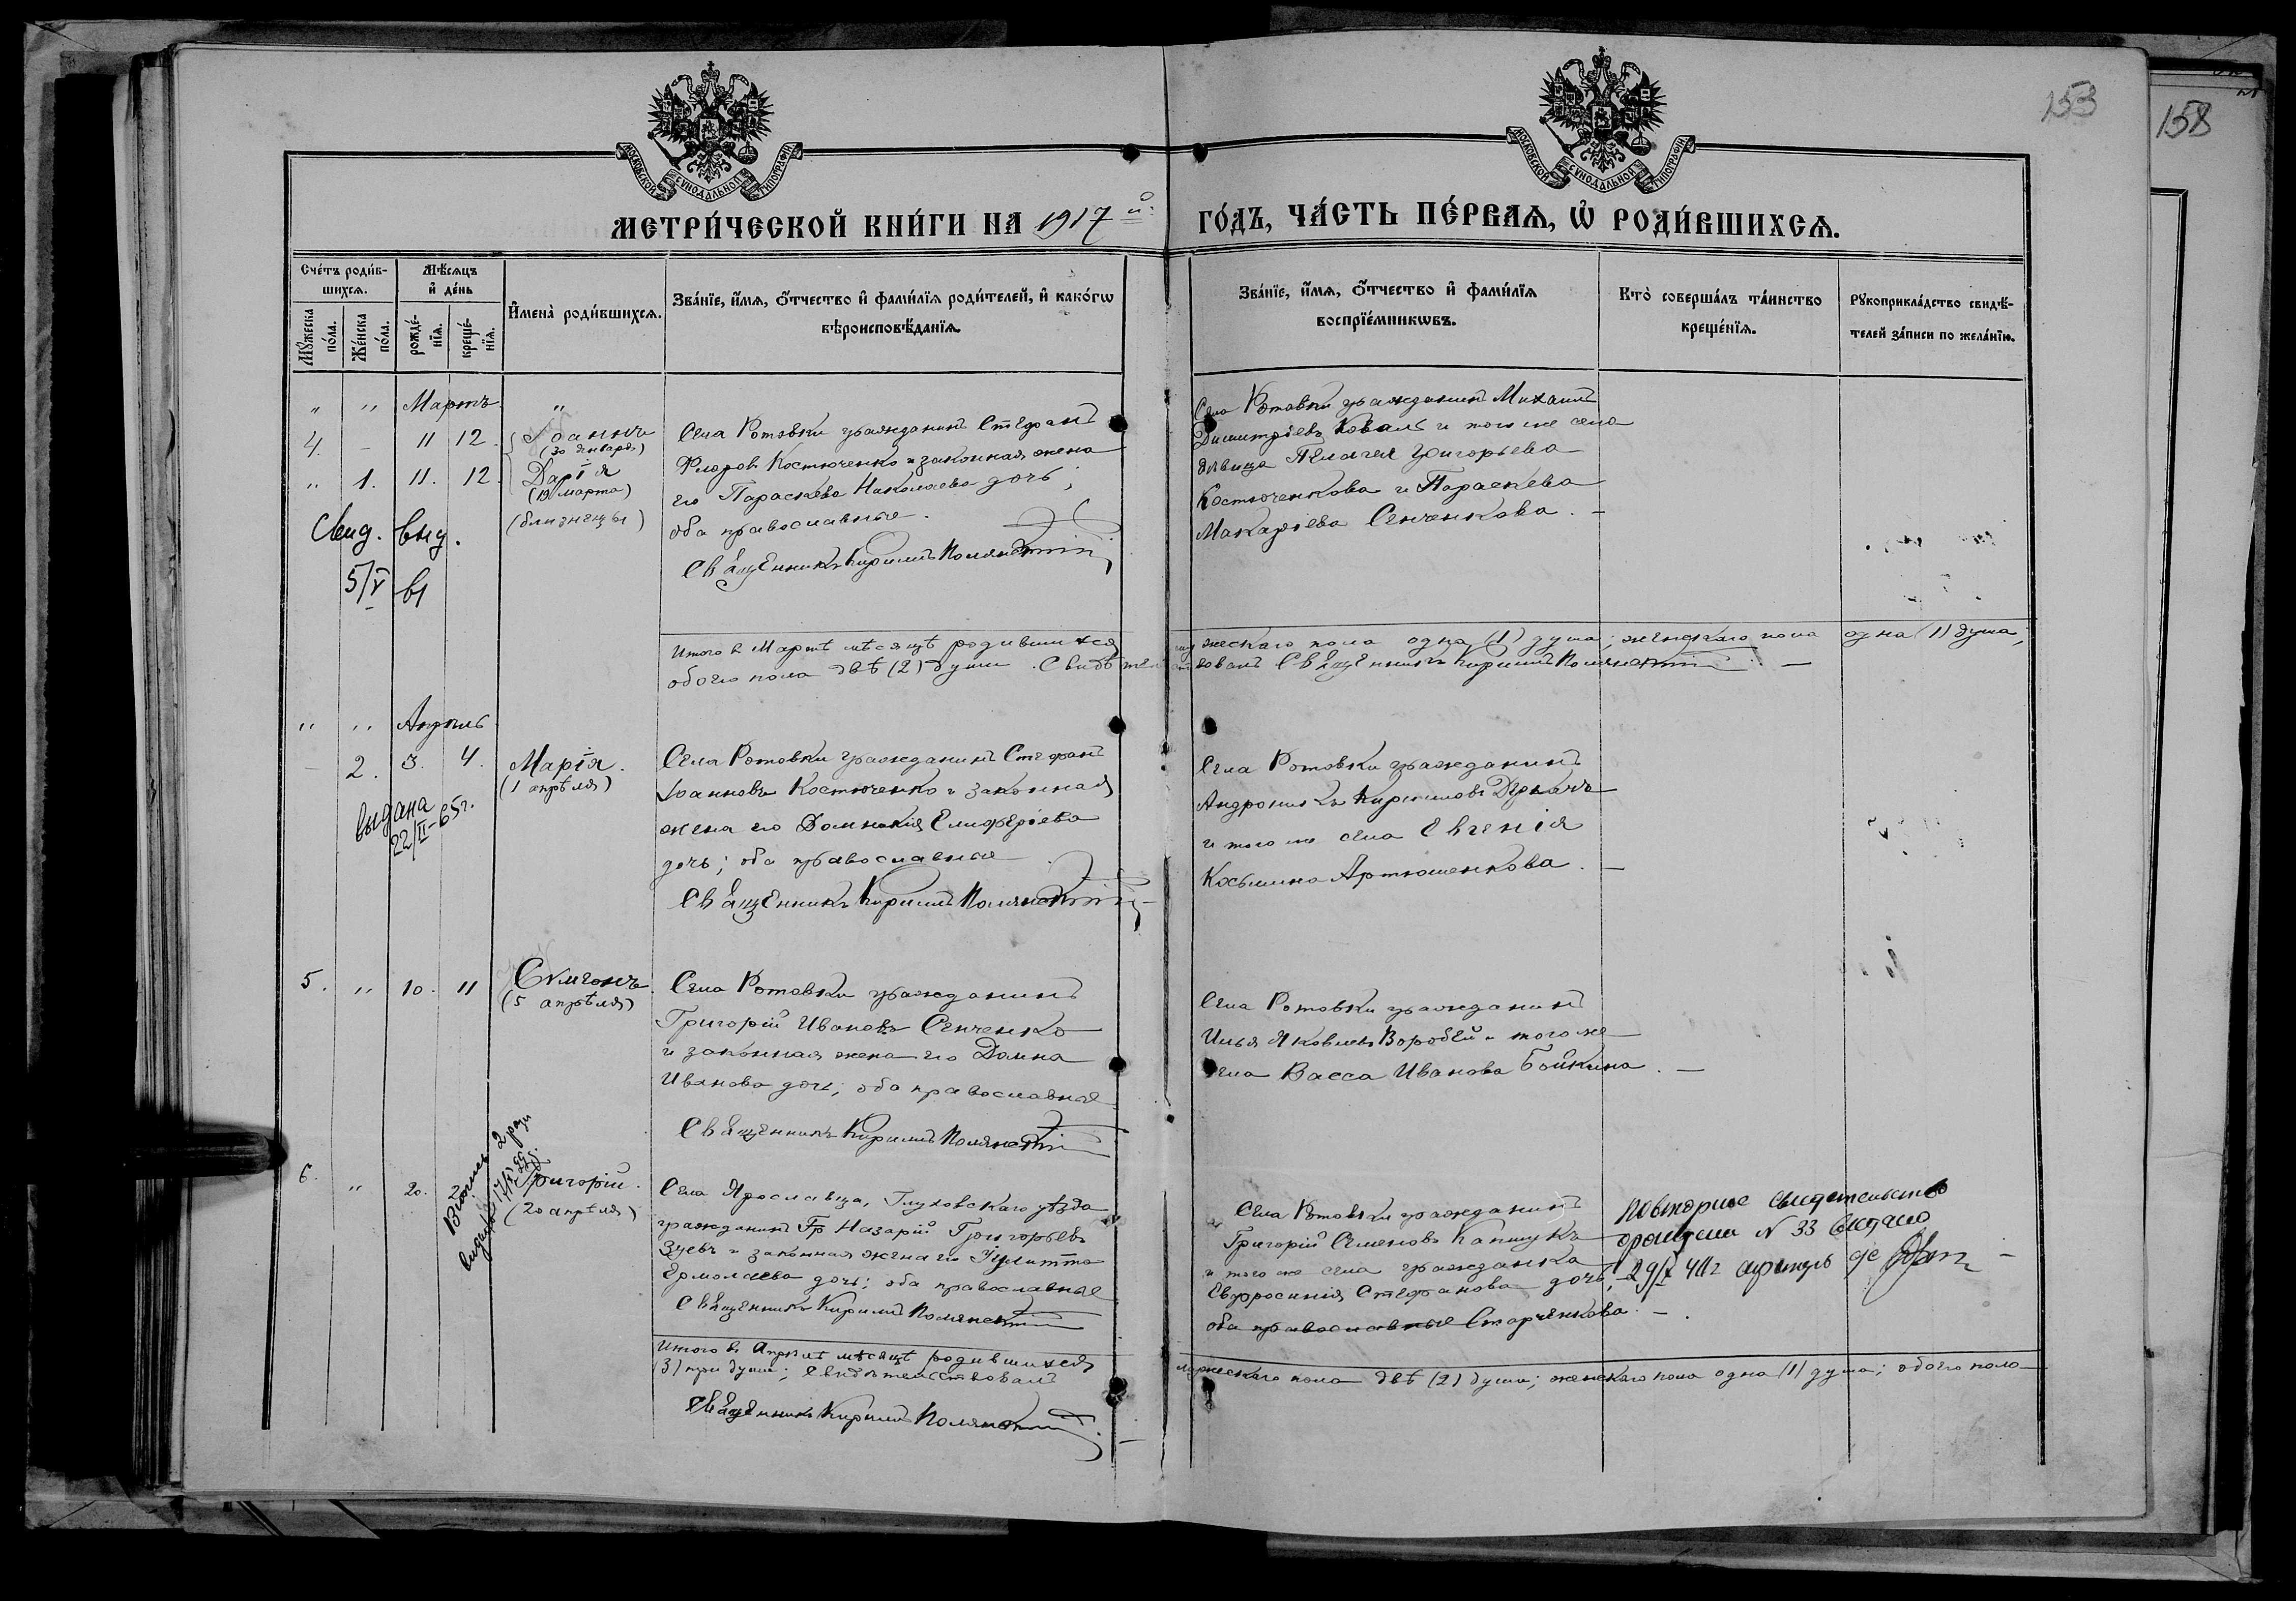 153
158
МОСКОВСКОЙ СУНОДАЛЬНОЙ ТИПОГРАФІИ
МОСКОВСКОЙ СУНОДАЛЬНОЙ ТИПОГРАФІИ
МЕТРИ́ЧЕСКОЙ КНИ́ГИ НА 1917й
ГО́ДЪ, ЧА́СТЬ ПЕ́РВАѦ, Ѡ҆ РОДИ́ВШИХСѦ.
Сче́тъ роди́в-
шихсѧ.
Мꙋ́жеска по́ла.
Же́нска по́ла.
Мѣ́сѧцъ
и҆ де́нь
рожде́-
нїѧ.
креще́-
нїѧ.
И҆мена̀ роди́вшихсѧ.
Зва́нїе, и҆́мѧ, ѻ҆́тчество и҆ фамы́лїѧ роди́телей, и҆ како́гѡ
вѣроисповѣ́данїѧ.
Зва́нїе, и҆́мѧ, ѻ҆́тчество и҆ фами́лїѧ
воспрїе́мникѡвъ.
Кто̀ соверша́лъ та́инство
креще́нїѧ.
Рꙋкоприкла́дство свидѣ́-
телей за́писи по жела́нїю.
" " Мартъ "
4. - 11 12. Іоаннъ
(30 января)
" 1. 11. 12. Дарія
(19 марта)
(близнецы)
Свид. выд.
5/V 61
Села Ротовки гражданинъ Стефанъ
Флоровъ Костюченко и законная жена
его Параскева Николаева дочь;
оба православные.
Священникъ Кириллъ Полянскій
Села Ротовки гражданинъ Михаилъ
Димитріевъ Коваль и того же села
дѣвица Пелагея Григорьева
Костюченкова и Параскева
Макаріева Сенченкова. -
Итого въ Мартѣ мѣсяцѣ родившихся мужескаго пола одна (1) душа; женскаго пола одна (1) душа;
обоего пола двѣ (2) души. Свидѣтельствовалъ Священникъ Кириллъ Полянскій -
" " Апрѣль
- 2. 3. 4. Марія.
(1 апрѣля)
выдана
22/II-65г.
Села Ротовки гражданинъ Стефанъ
Іоанновъ Костюченко и законная
жена его Домникія Елифѣріева
дочь; оба православные
Священникъ Кириллъ Полянскій
Села Ротовки гражданинъ
Андроникъ Кирилловъ Деркачъ
и того же села Евгенія
Косьмина Артюшенкова. -
5. " 10. 11 Сѵмеонъ.
(5 апрѣля)
Села Ротовки гражданинъ
Григорій Ивановъ Сенченко
и законная жена его Домна
Иванова дочь; оба православные
Священникъ Кириллъ Полянскій
Села Ротовки гражданинъ
Илья Яковлевъ Воробей и того же
села Васса Иванова Бойкина. -
6. " 20. 2 Григорій.
(20 апрѣля)
Села Ярославца, Глуховскаго уѣзда
гражданинъ Гр Назарій Григорьевъ
Зуевъ и законная жена его Улитта
Ермолаева дочь; оба православные
Священникъ Кириллъ Полянскій
Села Ротовки гражданинъ
Григорій Семеновъ Капшукъ
и того же села гражданка
Евфросинія Стефанова дочь,
оба православные Старченкова. -
Повторное свидетельство
N 33 выдано
29/X
Итого въ Апрѣлѣ мѣсяцѣ родившихся мужескаго пола двѣ (2) души; женскаго пола одна (1) душа; обоего пола
(3) три души; Свидѣтельствовалъ
Священникъ Кириллъ Полянскій